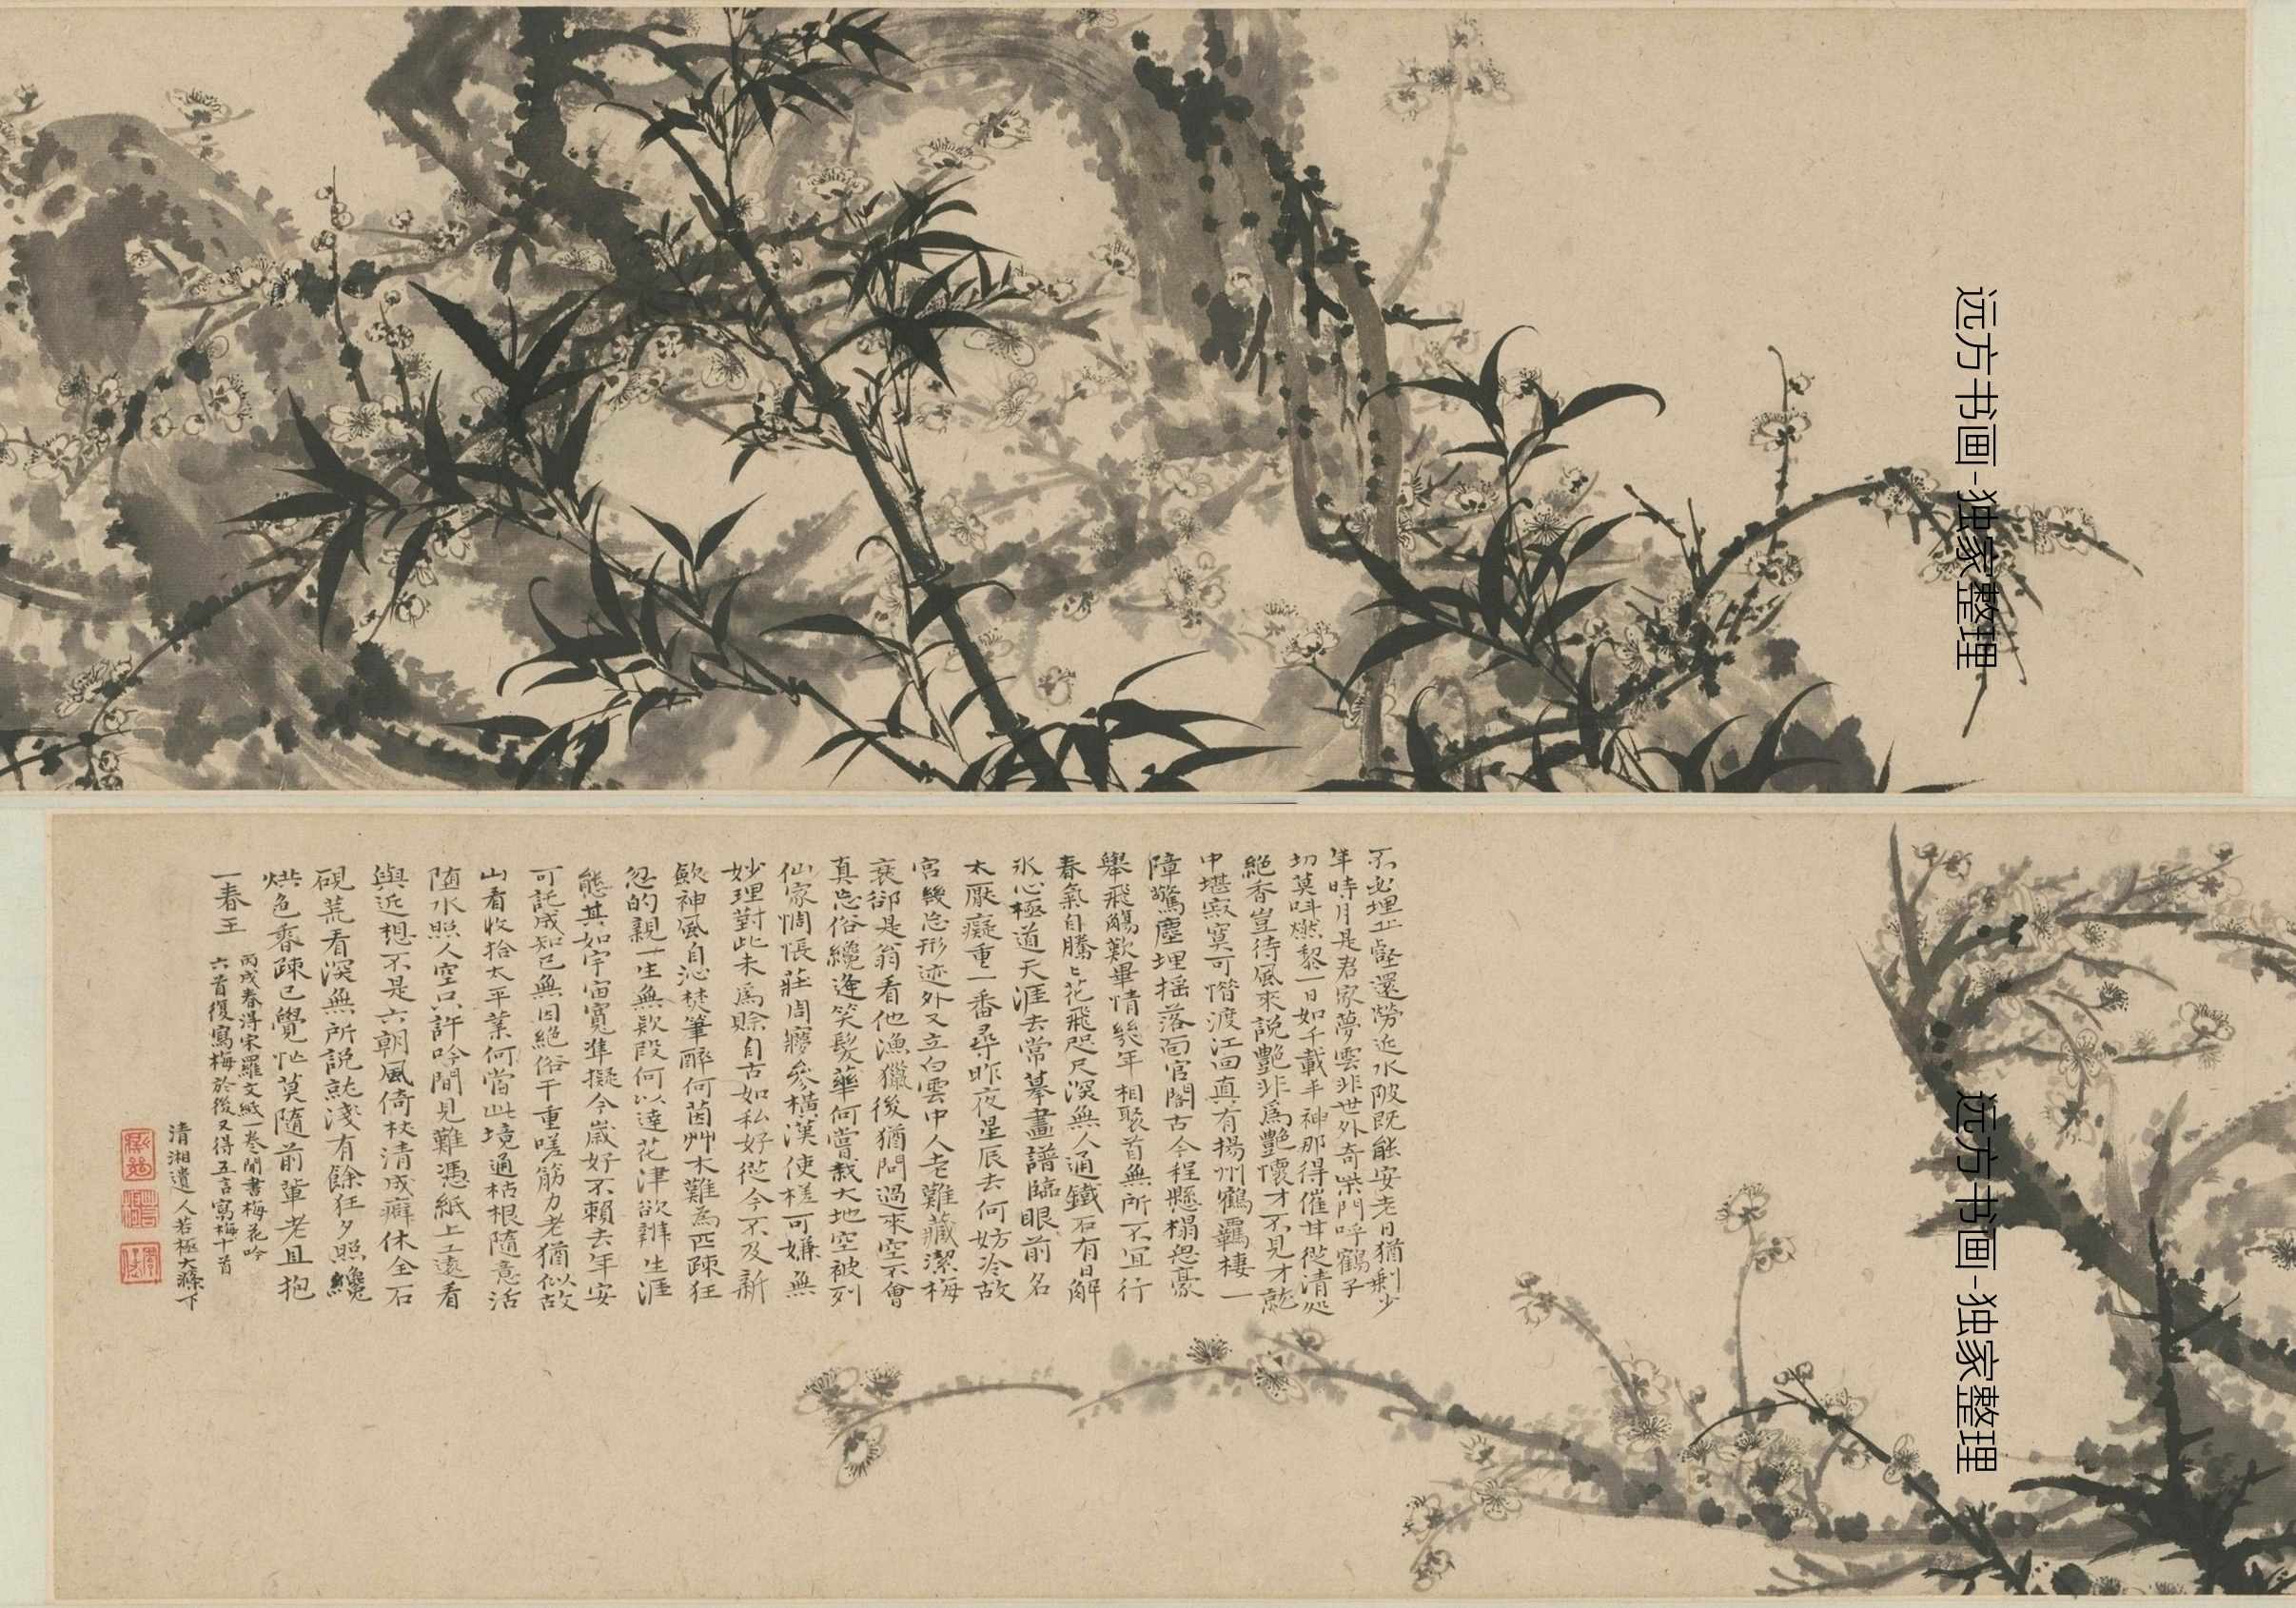 远方书画-独家整理
不必埋丘壑還勞近水陂既能安老日猶剩少
年時月是君家夢雲非世外奇柴門呼鶴子
切莫呌燃黎一日如千載丰神那得催甘從清処
絶香豈待風來説艷非爲艷懷才不見才就
中堪寂寞可惜渡江回真有揚州鶴羈棲一
障驚塵埋揺落面官閣古今程懸榻怱豪
舉飛觴歎畢情幾年相聚首無所不宜行
春氣自騰〻花飛咫尺深無人通鐵石有日解
氷心極道天涯去常摹畫譜臨眼前名
太厭癡重一番尋昨夜星辰去何妨冷故
宮幾忘形迹外又立白雲中人老難藏潔梅
衰卻是翁看他漁獵後猶問過來空不會
真忘俗纔逢笑髮華何嘗栽大地空被列
仙家惆悵莊周夢參橫漢使槎可嫌無
妙理對此未爲賒自古如私好從今不及新
數神風自沁焚筆醉何茵艸木難為匹疎狂
忽的親一生無欵段何以達花津欲辨生涯
態其如宇宙寬準擬今歲好不賴去年安
可託成知己無因絶俗干重嗟筋力老猶似故
山看收拾太平業何當此境通枯根隨意活
随水照人空只許吟間見難憑紙上工遠看
與近想不是六朝風倚杖清成癖休全石
硯荒看深無所説就淺有餘狂夕照纔
烘色香疎已覺忙莫隨前輩老且抱
一春王
丙戌春得宋羅文紙一卷閒書梅花吟
六首復寫梅於後又得五言寫梅十首
清湘遺人若極大滌下
远方书画-独家整理